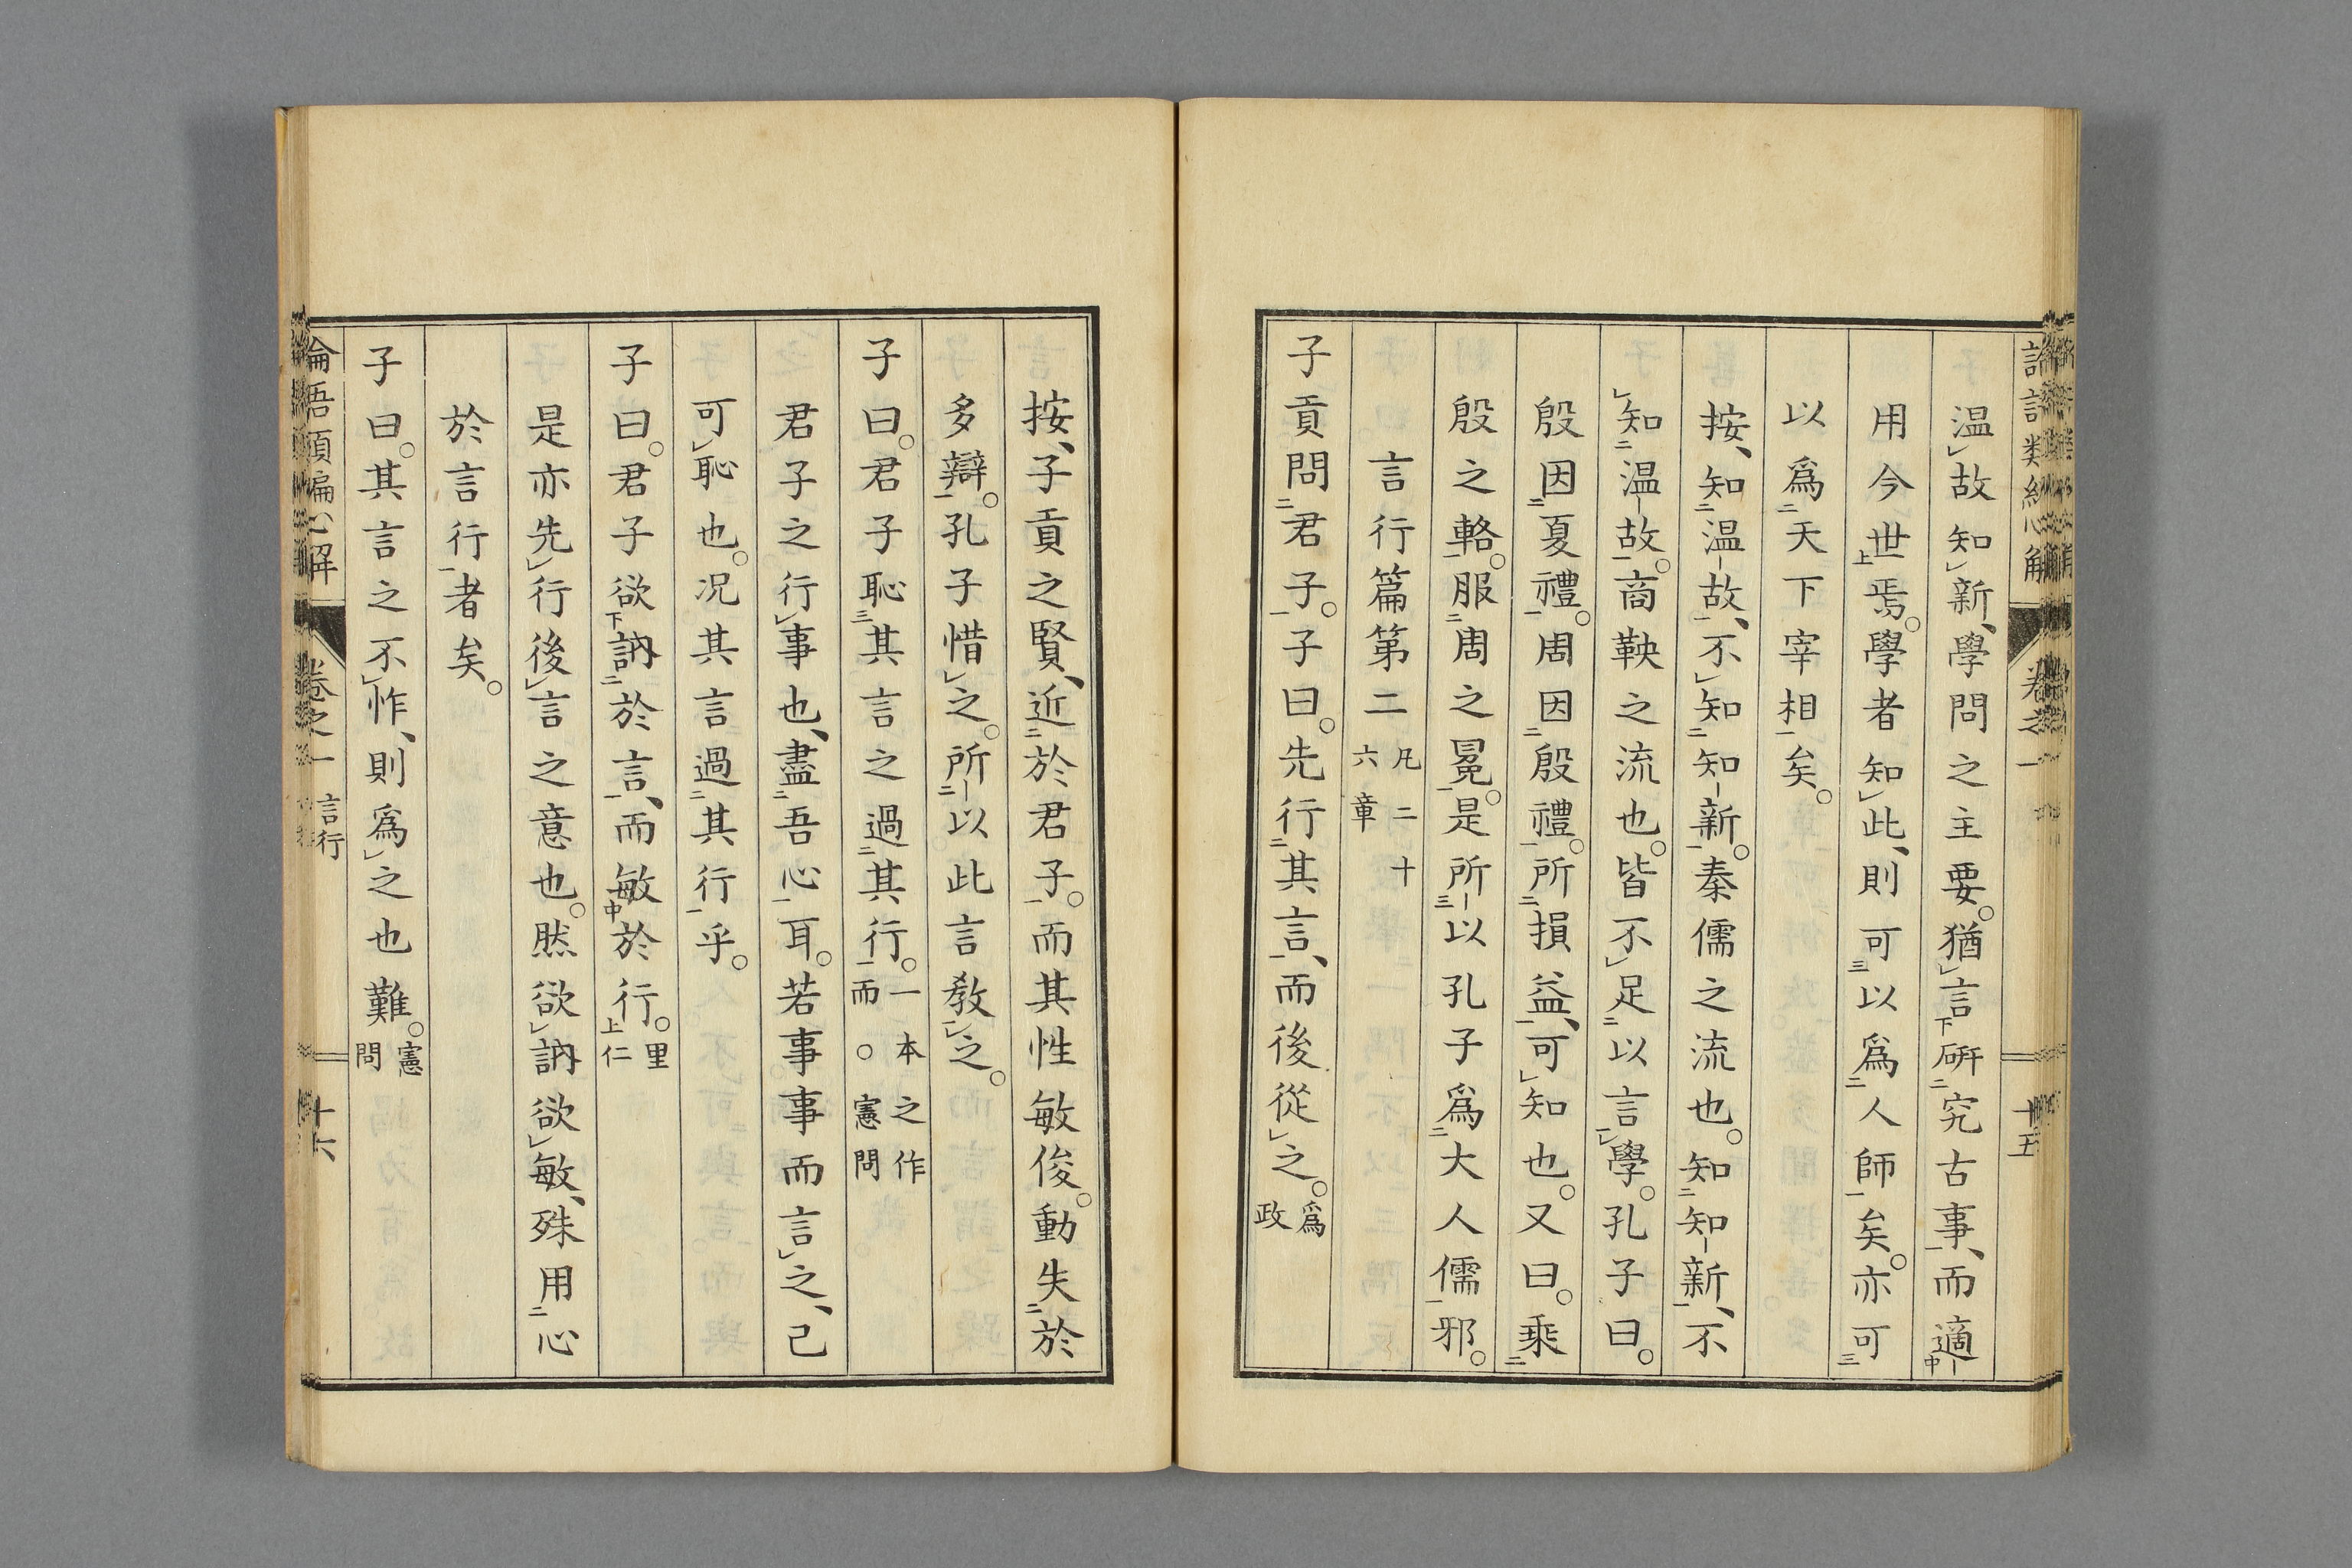 温故知新、學問之主要。猶言研究古事、而適
用今世焉。學者知此、則可以爲人師矣。亦可
以爲天下宰相矣。
按、知温故、不知知新。秦儒之流也。知知新、不
知温故。商鞅之流也。皆不足以言學。孔子曰。
殷因夏禮。周因殷禮。所損益、可知也。又曰。乘
殷之輅。服周之冕。是所以孔子爲大人儒邪。
言行篇第二 凡二十六章
子貢問君子。子曰。先行其言、而後從之。爲政
按、子貢之賢、近於君子。而其性敏俊。動失於
多辯。孔子惜之。所以此言敎之。
子曰。君子恥其言之過其行。一本之作而。憲問
君子之行事也、盡吾心耳。若事事而言之、己
可恥也。況其言過其行乎。
子曰。君子欲訥於言、而敏於行。里仁
是亦先行後言之意也。然欲訥欲敏、殊用心
於言行者矣。
子曰。其言之不怍、則爲之也難。憲問
卷之一 言行 十六